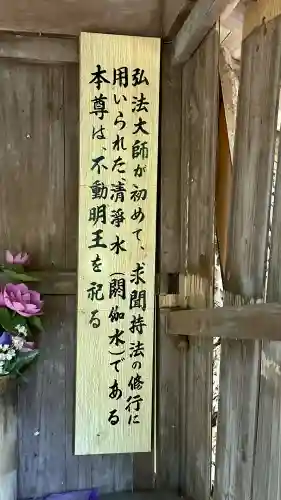 弘法大師が初めて、求聞持法の修行に
用いられた、清浄水（閼伽水）である
本尊は、不動明王を祀る